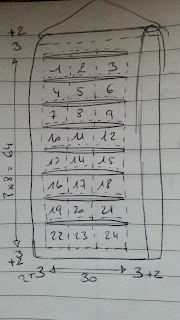 +2
3
1 2 3
4 5 6
7 8 9
10 11 12
13 14 15
16 17 18
19 20 21
22 23 24
8x8=64
3
+2
2+3 30 3+2